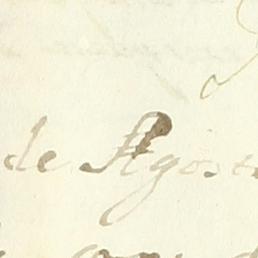 de Agosto